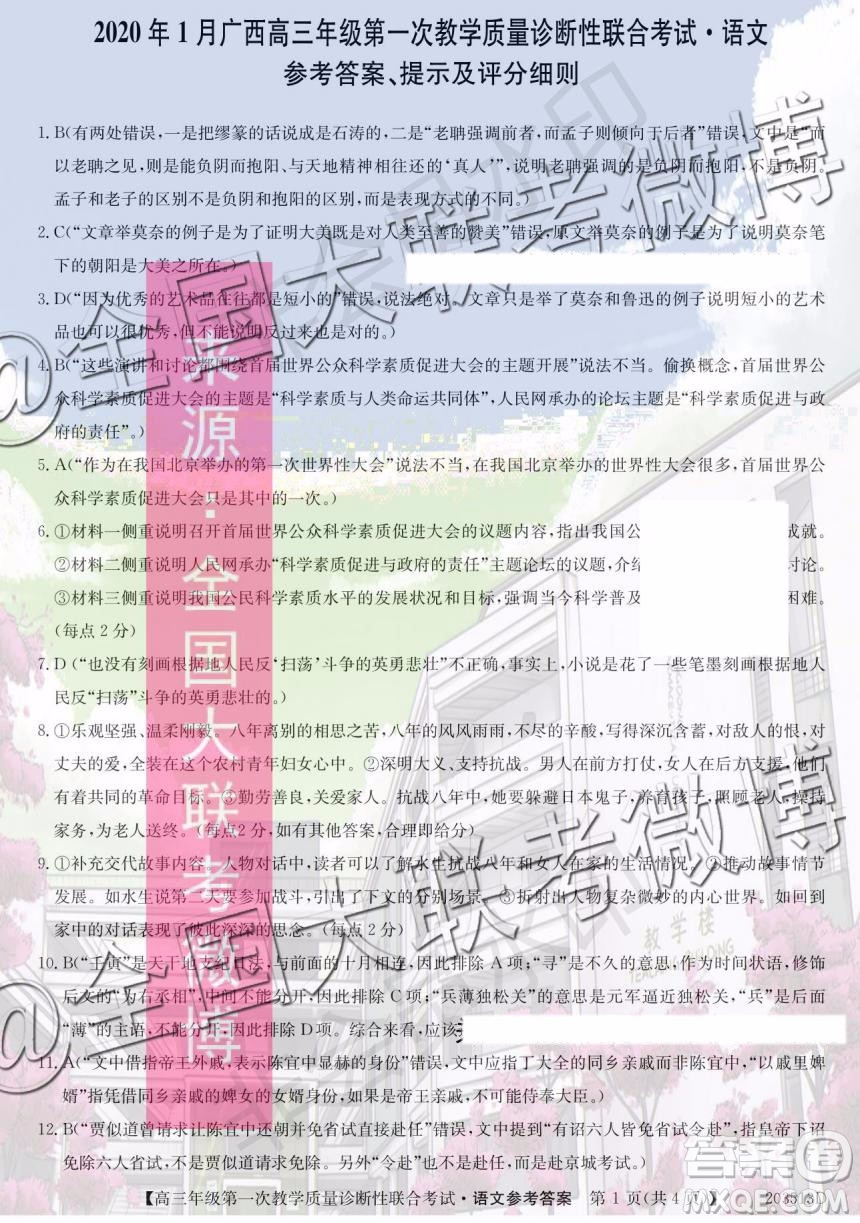 2020年1月广西高三年级第一次教学质量诊断性联合考试·语文
参考答案、提示及评分细则
1. B(有两处错误,一是把缪篆的话说成是石涛的,二是“老聃强调前者,而孟子则倾向于后者”错误,文中是“而
以老聃之见,则是能负阴而抱阳、与天地精神相往还的‘真人’”,说明老聃强调的是负阴而抱阳,不是负阴。
孟子和老子的区别不是负阴和抱阳的区别,而是表现方式的不同。)
2. C(“文章举莫奈的例子是为了证明大美既是对人类至善的赞美”错误,原文举莫奈的例子是为了说明莫奈笔
下的朝阳是大美之所在。)
3. D(“因为优秀的艺术品往往都是短小的”错误,说法绝对。文章只是举了莫奈和鲁迅的例子说明短小的艺术
品也可以很优秀,但不能说明反过来也是对的。)
4. B(“这些演讲和讨论都围绕首届世界公众科学素质促进大会的主题开展”说法不当。偷换概念,首届世界公
众科学素质促进大会的主题是“科学素质与人类命运共同体”,人民网承办的论坛主题是“科学素质促进与政
府的责任”。)
5. A(“作为在我国北京举办的第一次世界性大会”说法不当,在我国北京举办的世界性大会很多,首届世界公
众科学素质促进大会只是其中的一次。)
6. ①材料一侧重说明召开首届世界公众科学素质促进大会的议题内容,指出我国公 成就。
②材料二侧重说明人民网承办“科学素质促进与政府的责任”主题论坛的议题,介绍 讨论。
③材料三侧重说明我国公民科学素质水平的发展状况和目标,强调当今科学普及 困难。
(每点2分)
7. D(“也没有刻画根据地人民反‘扫荡’斗争的英勇悲壮”不正确,文中,小说是花了一些笔墨刻画根据地人
民反“扫荡”斗争的英勇悲壮的。)
8. ①乐观坚强、温柔刚毅。八年离别的相思之苦,八年的风风雨雨,不尽的辛酸,写得深沉含蓄,对敌人的恨,对
丈夫的爱,全装在这个农村青年妇女心中。②深明大义、支持抗战。男人在前方打仗,女人在后方支援,他们
有着共同的革命目标。③勤劳善良,关爱家人。抗战八年中,她要躲避日本鬼子,养育孩子,照顾老人,操持
家务,为老人送终。(每点2分,如有其他答案,合理即给分)
9. ①补充交代故事内容。人物对话中,读者可以了解水生抗战八年和女人在家的生活情况。②推动故事情节
发展。如水生说第二天要参加战斗,引出了下文的分别场景。③折射出人物复杂微妙的内心世界。如回到
家中的对话表现了彼此深深的思念。(每点2分)
10. B(“壬寅”是天干地支纪日法,与前面的十月相连,因此排除A项;“寻”是不久的意思,作时间状语,修饰
后文的“为右丞相”,中间不能分开,因此排除C项;“兵薄独松关”的意思是元军逼近独松关,“兵”是后面
“薄”的主语,不能分开,因此排除D项。综合来看,应该
11. A(“文中借指帝王外戚,表示陈宜中显赫的身份”错误,文中应指丁大全的同乡亲戚而非陈宜中,“以戚里婢
婿”指凭借同乡亲戚的婢女的女婿身份,如果是帝王亲戚,不可能侍奉大臣。)
12. B(“贾似道曾请求让陈宜中还朝并免省试直接赴任”错误,文中提到“有诏六人皆免省试令赴”,指皇帝下诏
免除六人省试,不是贾似道。另外“令赴”也不是赴任,而是赴京城考试。)
【高三年级第一次教学质量诊断性联合考试·语文参考答案 第1页(共4页)】 203513D
@全国大联考微博
来源:全国大联考微博
@全国大联考微博
教学楼
答案卷
MXQE.COM